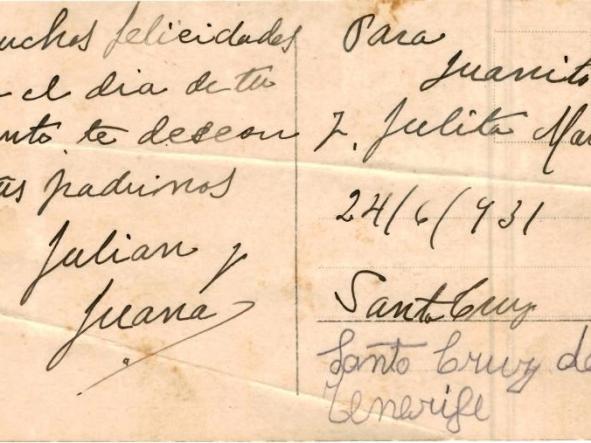 uchas felicidades
n el dia de tu
anto te desean
us padrinos
Julian y
Juana
Para
Juanito
J. Julita Mar
24/6/931
Santa Cruz
Santa Cruz de
Tenerife